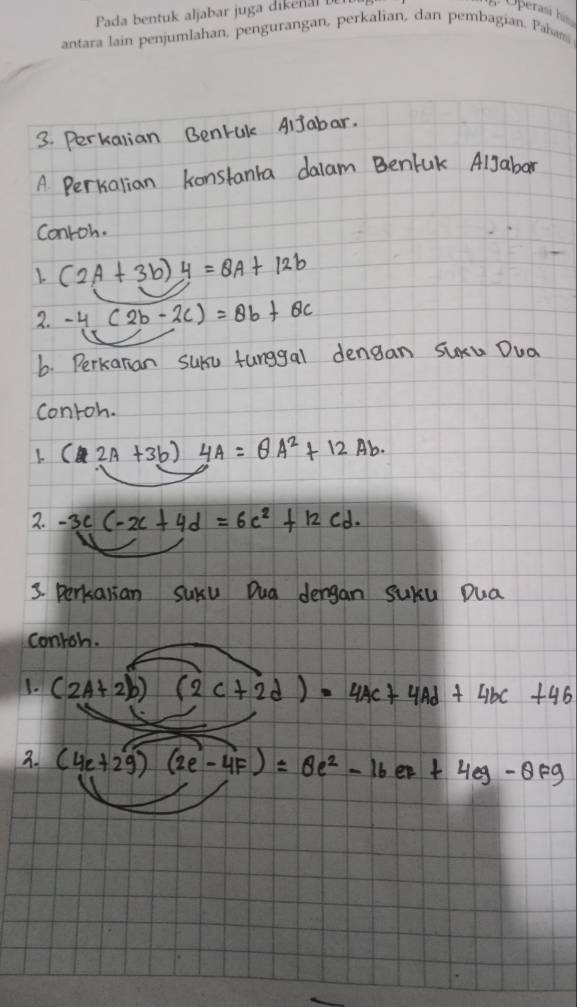 Pada bentuk aljabar juga
Operasi
antara lain penjumlahan, pengurangan, perkalian, dan pembagian.
3. Perkalian Bentuk Aljabar.
A Perkalian konstanta dalam Bentuk Aljabar
Contoh.
1. (2A + 3b) 4 = 8A + 12b
2. -4 (2b - 2c) = 8b + 8c
b. Perkalian suku tunggal dengan suku Dua
Contoh.
1. (2A + 3b) 4A = 8A² + 12 Ab.
2. -3c (-2c + 4d = 6c² + 12 cd.
3. Perkalian suku Dua dengan suku Dua
Contoh.
1. (2A + 2b) (2c + 2d) = 4Ac + 4Ad + 4bc + 4b
2. (4e + 2g) (2e - 4F) = 8e² - 16 eF + 4eg - 8Fg